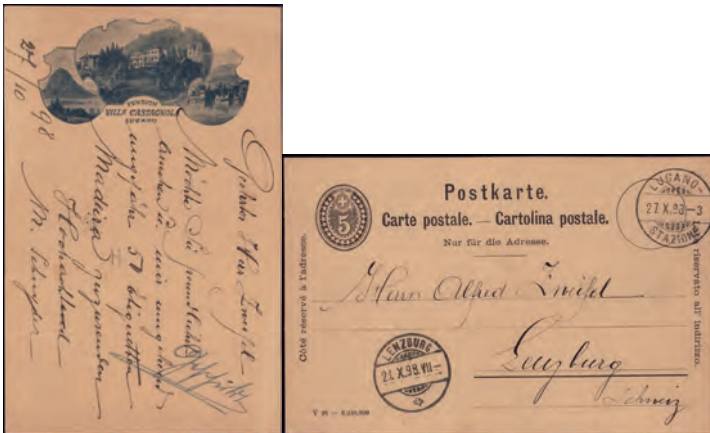 27/10 98
PENSION
VILLA CASTAGNOLA
LUGANO
Geehrter Herr Zweifel
Möchte Sie freundlichst
ersuchen mir umgehend
ungefähr 50 Etiquetten
Madeira zuzusenden
Hochachtend
M. Schnyder
Postkarte.
Carte postale. — Cartolina postale.
Nur für die Adresse.
5
LUGANO-
27.X.98-3
STAZIONE
Côté réservé à l'adresse.
Lato riservato all' indirizzo.
Herrn Alfred Zweifel
Lenzburg
Schweiz
LENZBURG
X.98.VII